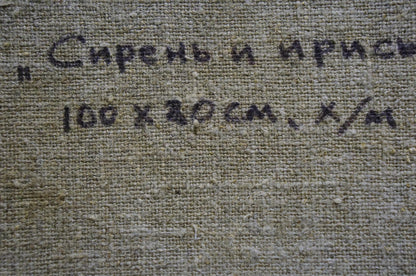 „Сирень и ирисы
100 х 80 см. х/м